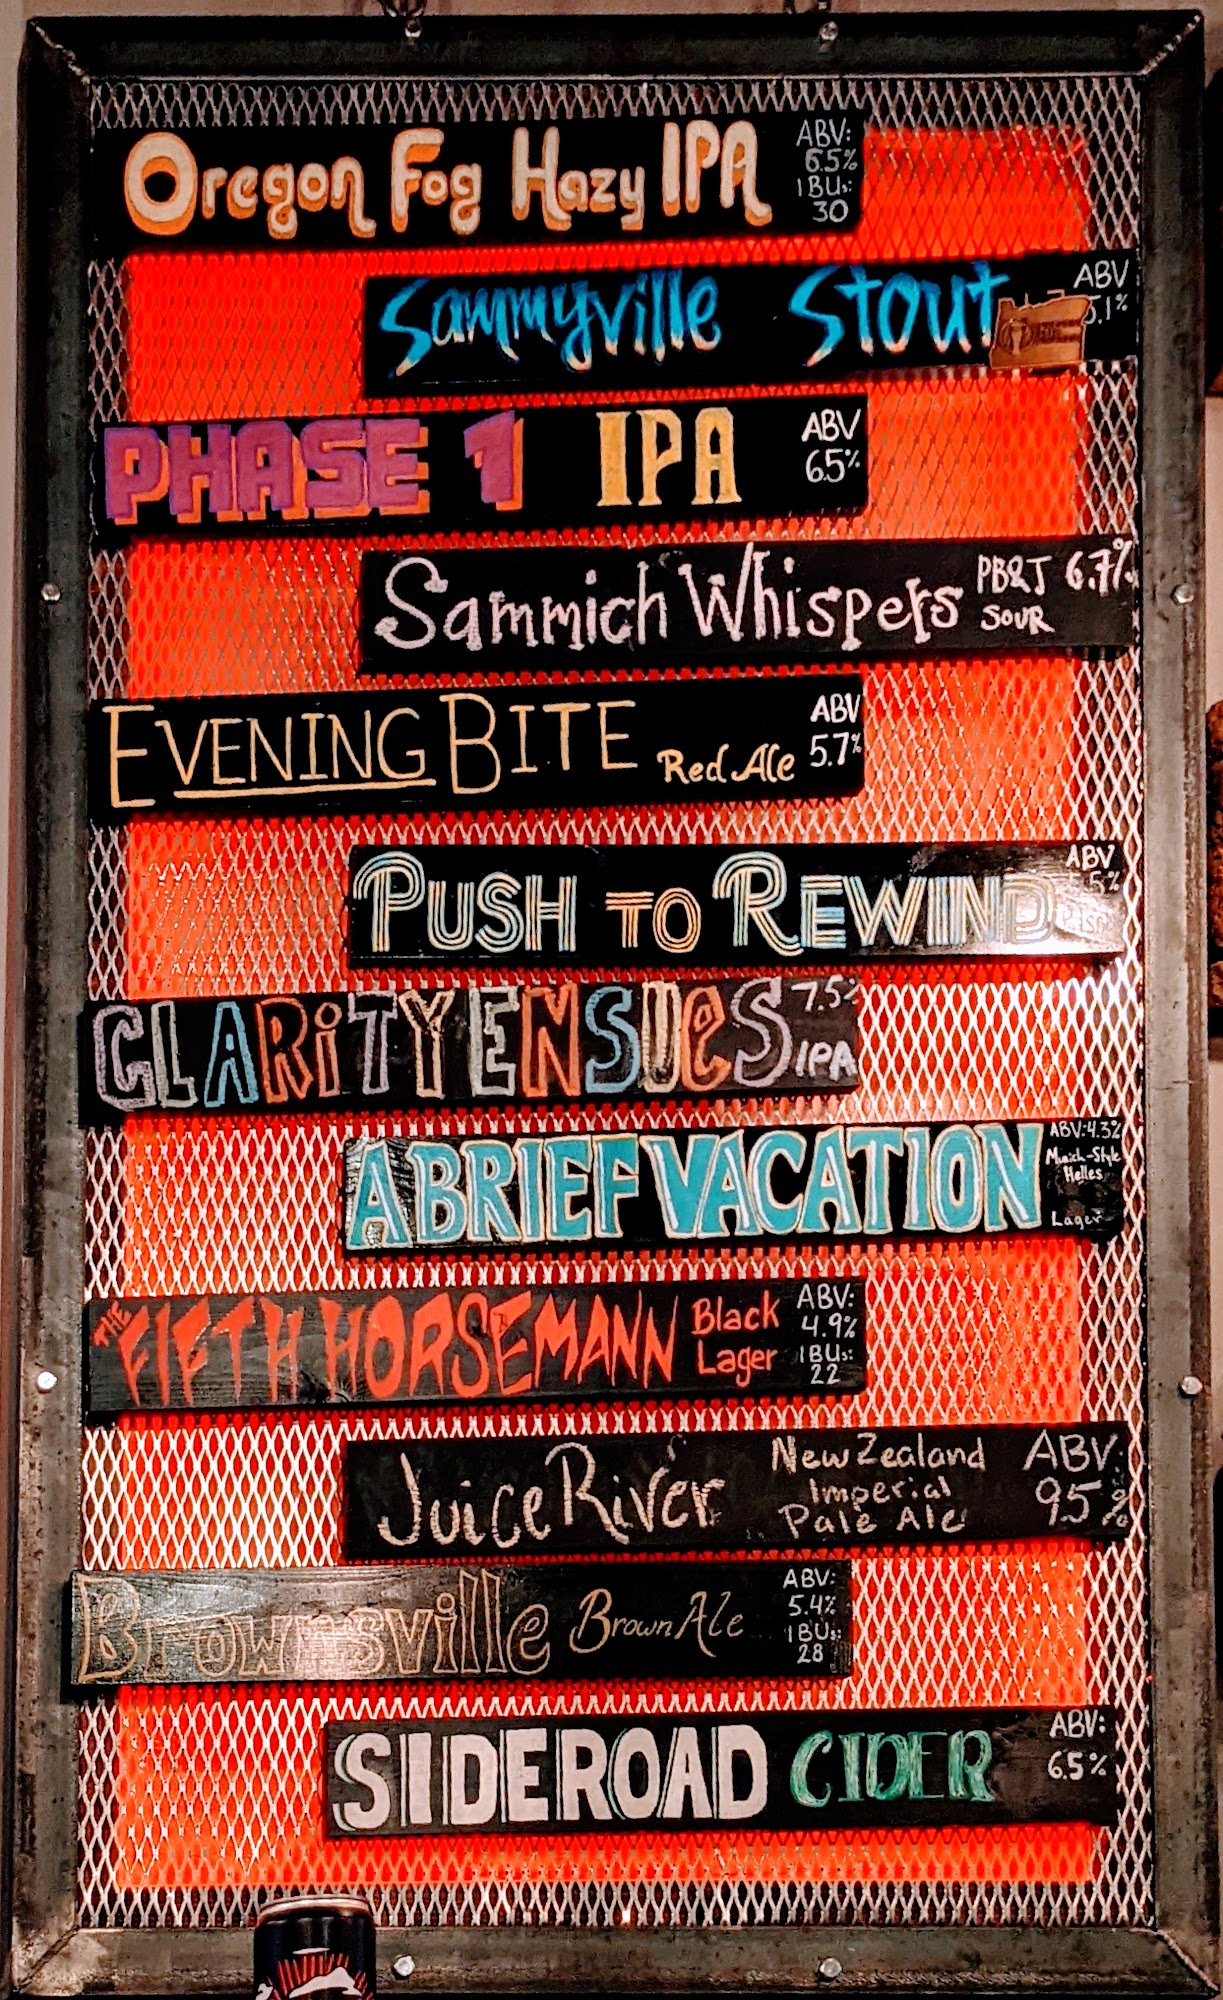 Oregon Fog Hazy IPA
ABV:
6.5%
IBUs:
30
Sammyville Stout
ABV
5.1%
PHASE 1 IPA
ABV
6.5%
Sammich Whispers
PB&J 6.7%
SOUR
EVENING BITE
Red Ale
ABV
5.7%
PUSH TO REWIND
ABV
CLARITY ENSUES
7.5%
IPA
A BRIEF VACATION
ABV:4.3%
Munich-Style
Helles
Lager
THE FIFTH HORSEMANN
Black
Lager
ABV:
4.9%
IBUs:
22
Juice River
New Zealand
Imperial
Pale Ale
ABV:
9.5%
Brownsville Brown Ale
ABV:
5.4%
IBUs:
28
SIDEROAD CIDER
ABV:
6.5%